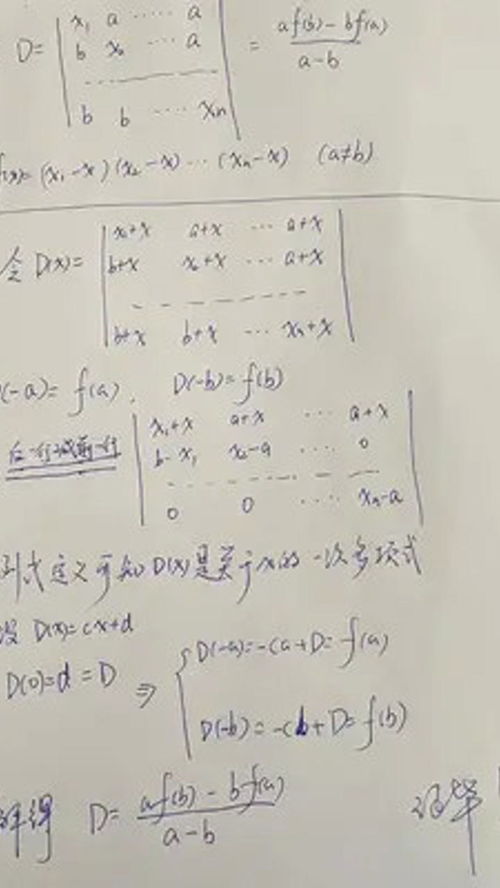 D= | x₁ a ····· a |
| b x₂ ··· a | = (af(b)-bf(a))/(a-b)
| - - - - - - - |
| b b ···· xₙ |
f(x)=(x₁-x)(x₂-x)···(xₙ-x) (a≠b)
令 D(x)= | x₁+x a+x ··· a+x |
| b+x x₂+x ··· a+x |
| - - - - - - - |
| b+x b+x ··· xₙ+x |
D(-a)=f(a), D(-b)=f(b)
后一行减前一行 | x₁+x a+x ··· a+x |
| b-x₁ x₂-a ··· 0 |
| - - - - - - - |
| 0 0 ···· xₙ-a |
列式定义可知D(x)是关于x的一次多项式
设 D(x)=cx+d
D(0)=d=D ⇒ { D(-a)=-ca+D=f(a)
D(-b)=-cb+D=f(b)
解得 D= (af(b)-bf(a))/(a-b) 证毕